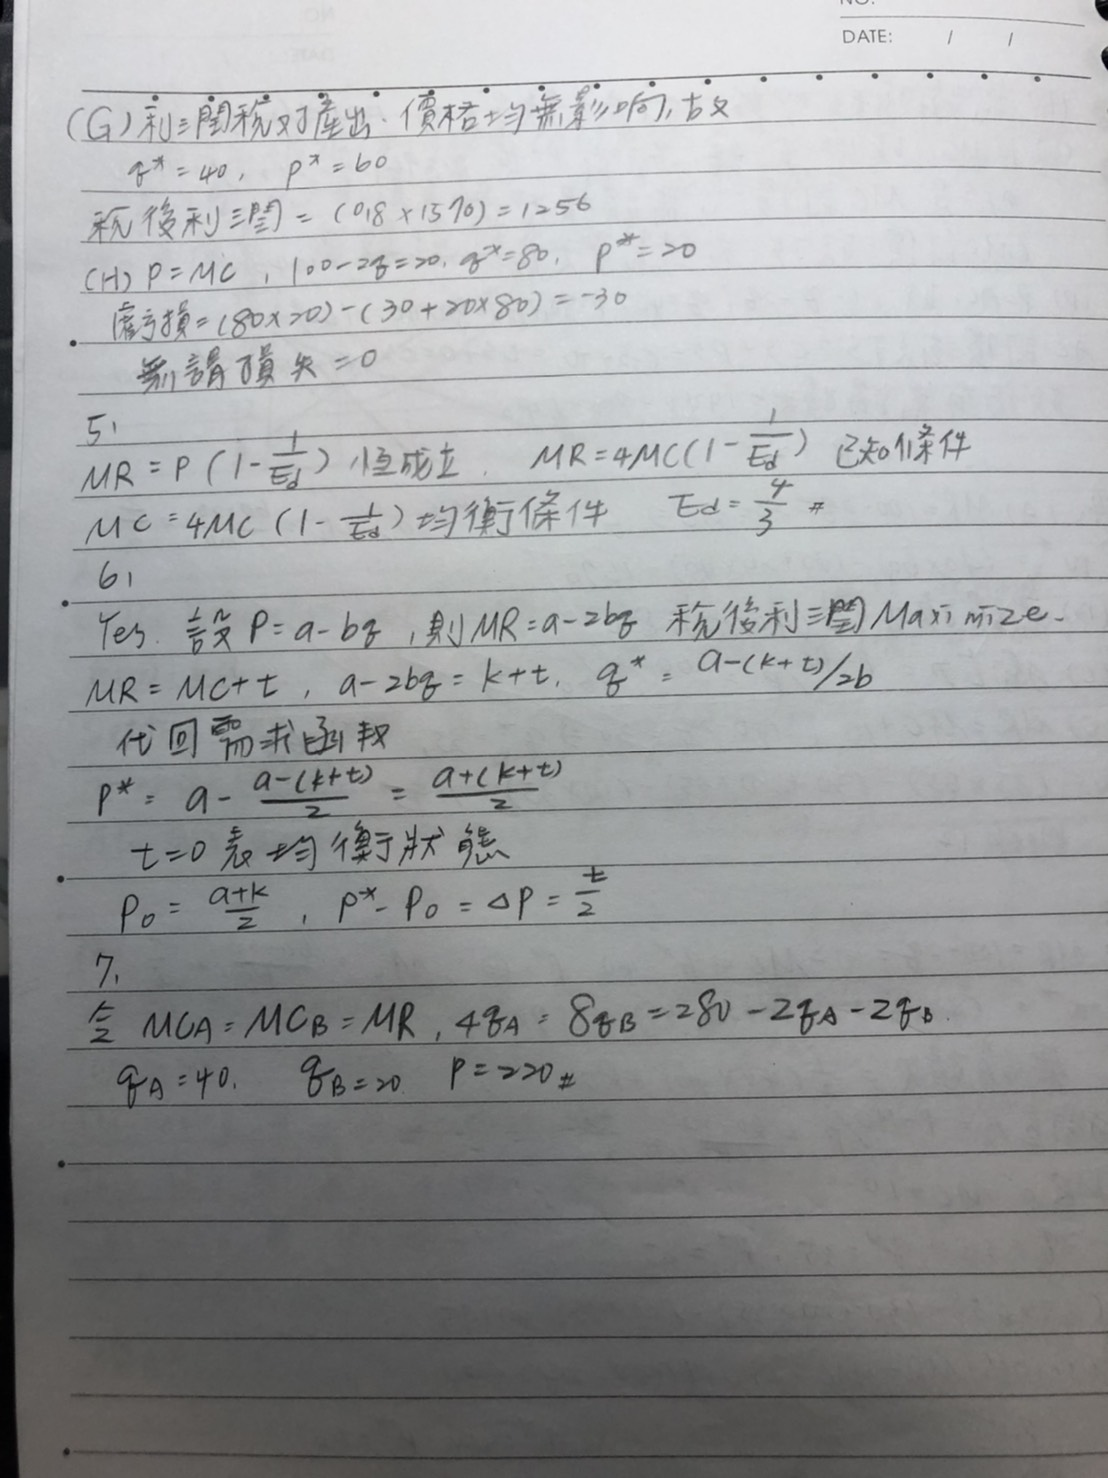 NO.
DATE: / /
(G) 利潤稅對產出、價格均無影响,故
q* = 40, P* = 60
稅後利潤 = (0.8 × 1570) = 1256
(H) P = MC , 100-2q=20, q*=80, P*=20
虧損 = (80×20) - (30+20×80) = -30
無謂損失 = 0
5.
MR = P (1 - 1/Ed) 恆成立. MR = 4MC (1 - 1/Ed) 已知條件
MC = 4MC (1 - 1/Ed) 均衡條件 Ed = 4/3 #
6.
Yes. 設 P = a-bq , 則 MR = a-2bq 稅後利潤 Maximize.
MR = MC+t , a-2bq = k+t. q* = a-(k+t)/2b
代回需求函数
P* = a - a-(k+t)/2 = a+(k+t)/2
t=0 表均衡狀態
P₀ = a+k/2 , P* - P₀ = ΔP = t/2
7.
令 MCA = MCB = MR , 4qA = 8qB = 280 - 2qA - 2qB.
qA = 40. qB = 20 P = 220 #